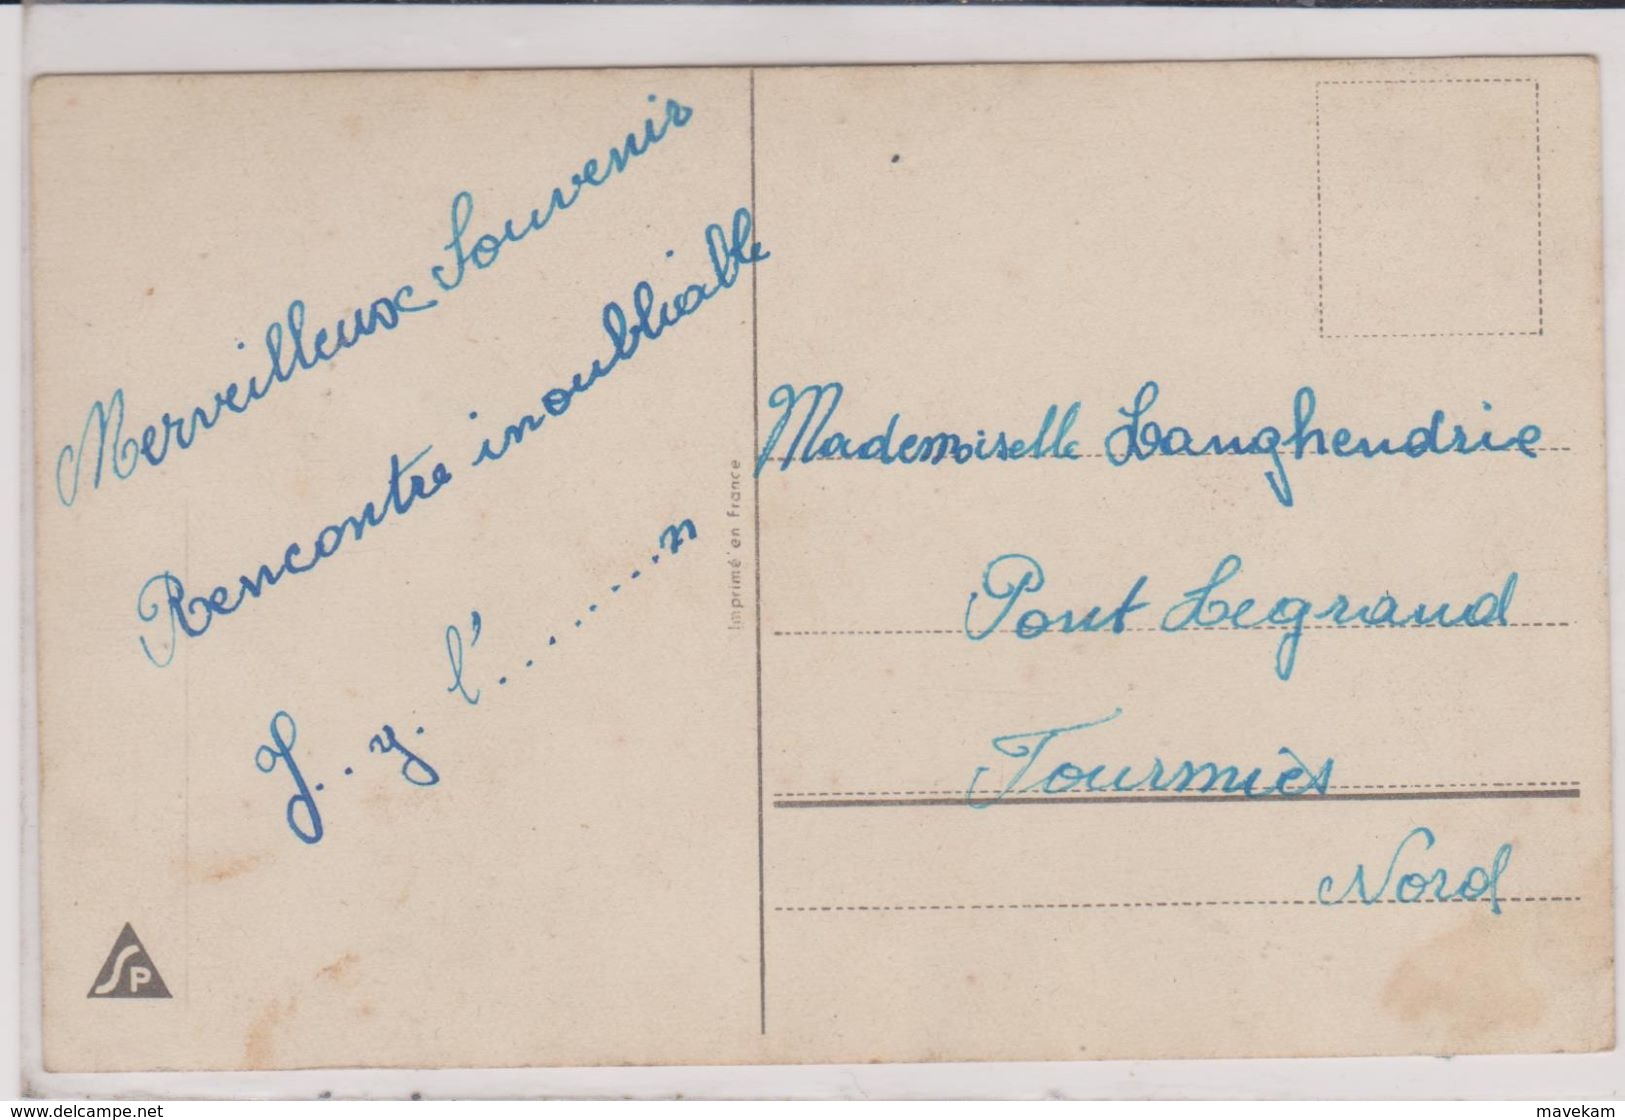 Merveilleux Souvenir
Rencontre inoubliable
J. . y. l'. . . . . . . . n
Imprimé en France
Mademoiselle Langhendrie
Pont Legrand
Fourmiès
Nord
SP
www.delcampe.net
mavekam